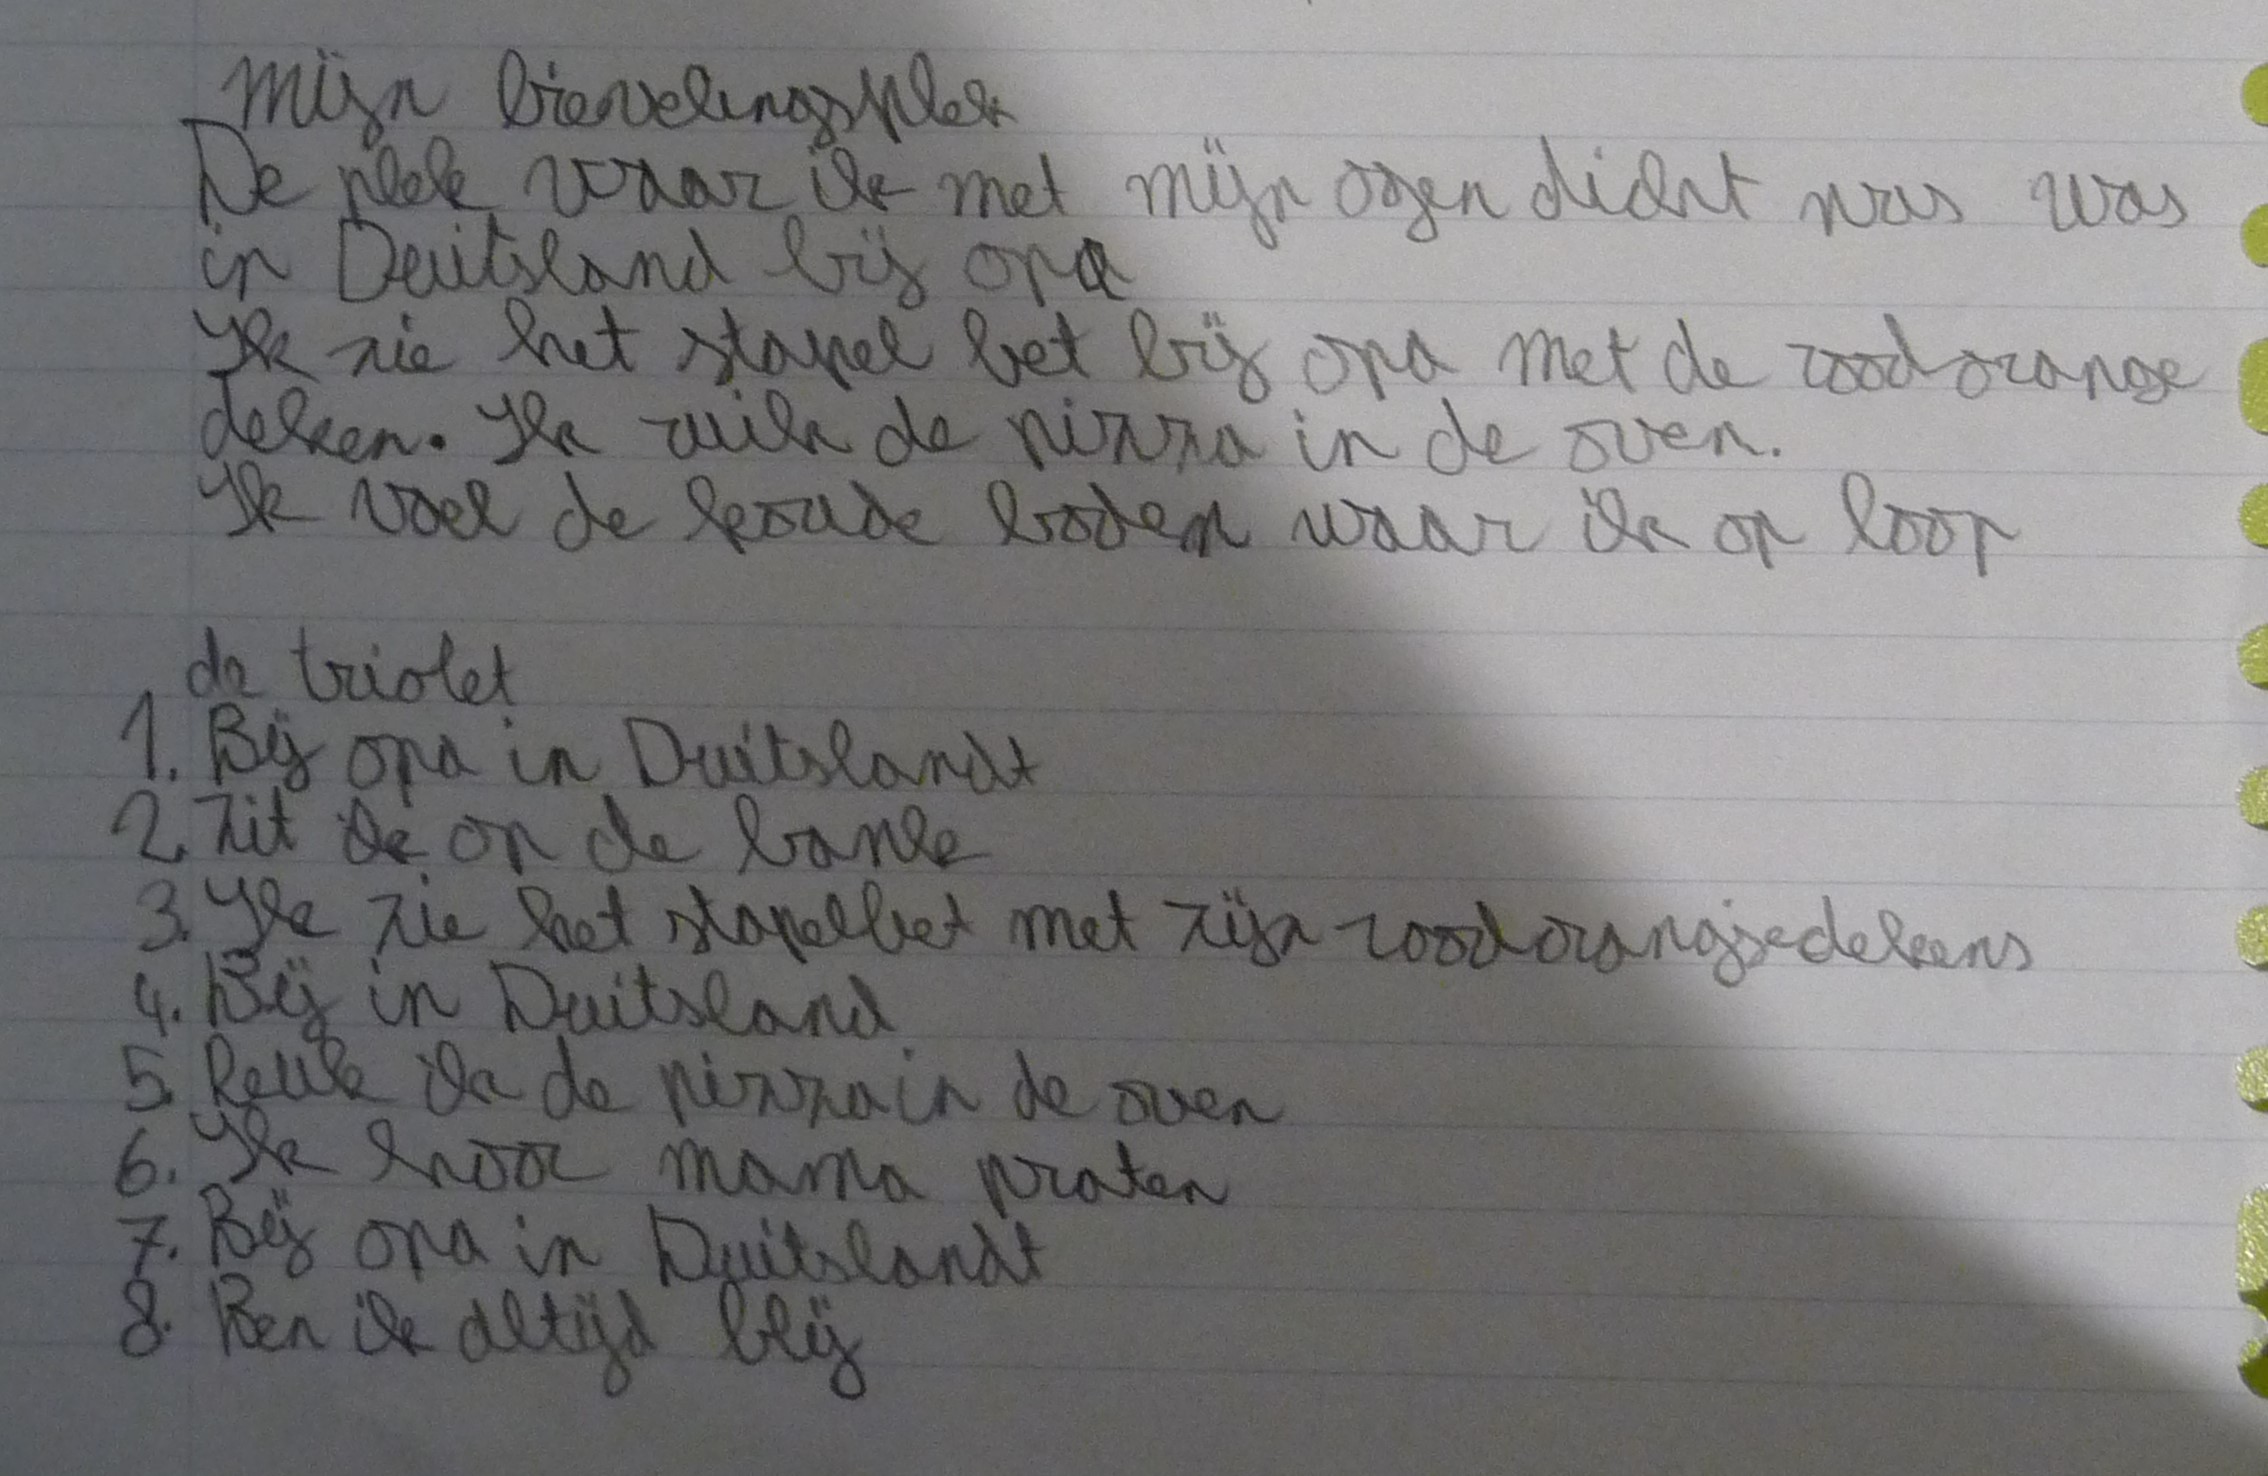 Mijn lievelingsplek
De plek waar ik met mijn ogen dicht was was
in Duitsland bij opa
Ik zie het stapel bet bij opa met de rood orange
deken. Ik ruik de pizza in de oven.
Ik voel de koude bodem waar ik op loop
de triolet
1. Bij opa in Duitslandt
2. Zit ik op de bank
3. Ik zie het stapelbet met zijn rood orangje dekens
4. Bij in Duitsland
5. Reuk ik de pizza in de oven
6. Ik hoor mama praten
7. Bij opa in Duitslandt
8. Ben ik altijd blij